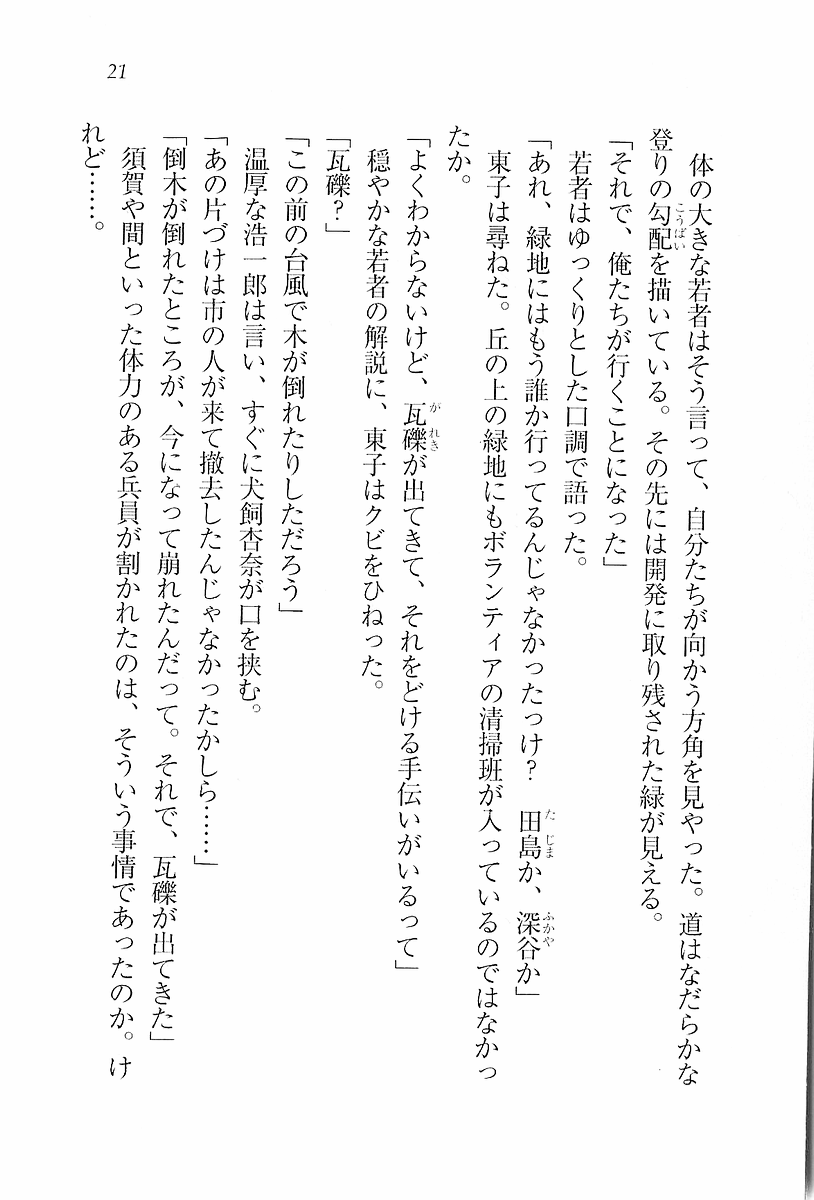 21
体の大きな若者はそう言って、自分たちが向かう方角を見やった。道はなだらかな
登りの勾配を描いている。その先には開発に取り残された緑が見える。
「それで、俺たちが行くことになった」
若者はゆっくりとした口調で語った。
「あれ、緑地にはもう誰か行ってるんじゃなかったっけ？　田島か、深谷か」
東子は尋ねた。丘の上の緑地にもボランティアの清掃班が入っているのではなかっ
たか。
「よくわからないけど、瓦礫が出てきて、それをどける手伝いがいるって」
穏やかな若者の解説に、東子はクビをひねった。
「瓦礫？」
「この前の台風で木が倒れたりしただろう」
温厚な浩一郎は言い、すぐに犬飼杏奈が口を挟む。
「あの片づけは市の人が来て撤去したんじゃなかったかしら……」
「倒木が倒れたところが、今になって崩れたんだって。それで、瓦礫が出てきた」
須賀や間といった体力のある兵員が割かれたのは、そういう事情であったのか。け
れど……。